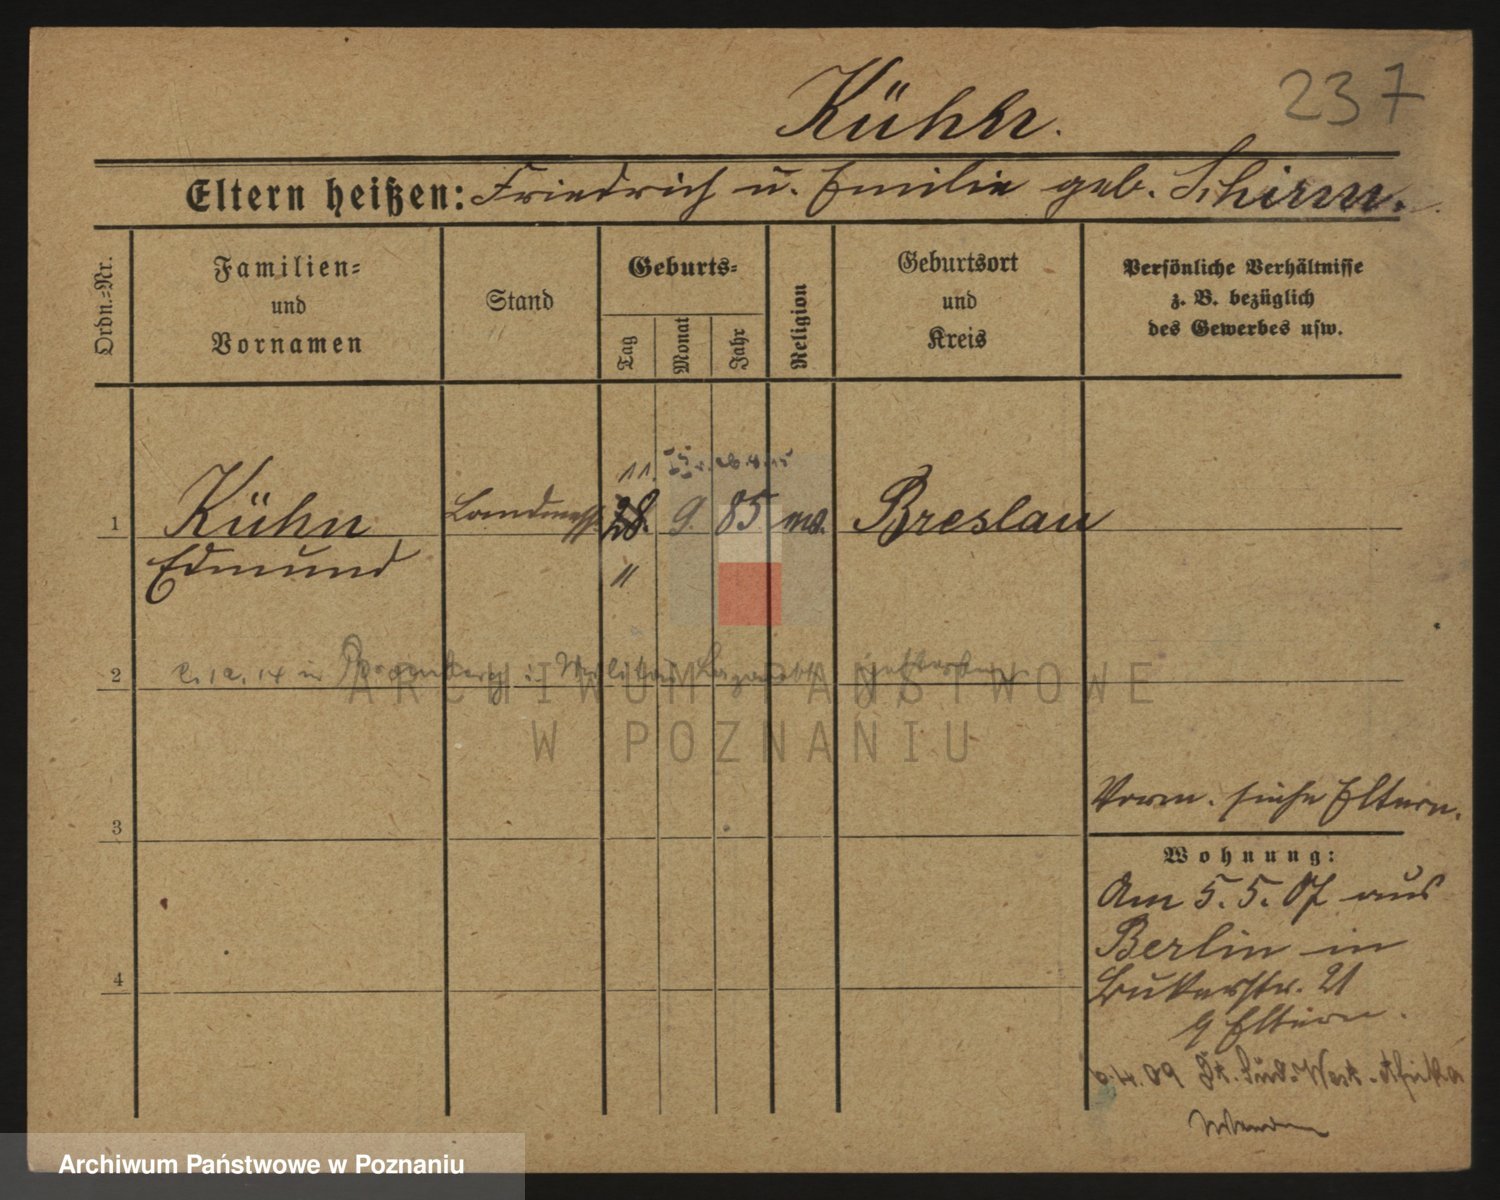 237
Kühn.
Eltern heißen: Friedrich u. Emilie geb. Schirm.
Ordn.=Nr.
Familien= und Vornamen
Stand
Geburts=
Tag
Monat
Jahr
Religion
Geburtsort und Kreis
Persönliche Verhältnisse z. B. bezüglich des Gewerbes usw.
11.
1 Kühn Landmess. 28. 9. 85 Breslau
Edmund "
2 in Militär Lazarett
3
Vorm. siehe Eltern.
Wohnung:
Am 5. 5. 07 aus
Berlin in
21
Eltern.
4
4. 09 Dt. Süd-West-Afrika
ARCHIWUM PAŃSTWOWE
W POZNANIU
Archiwum Państwowe w Poznaniu